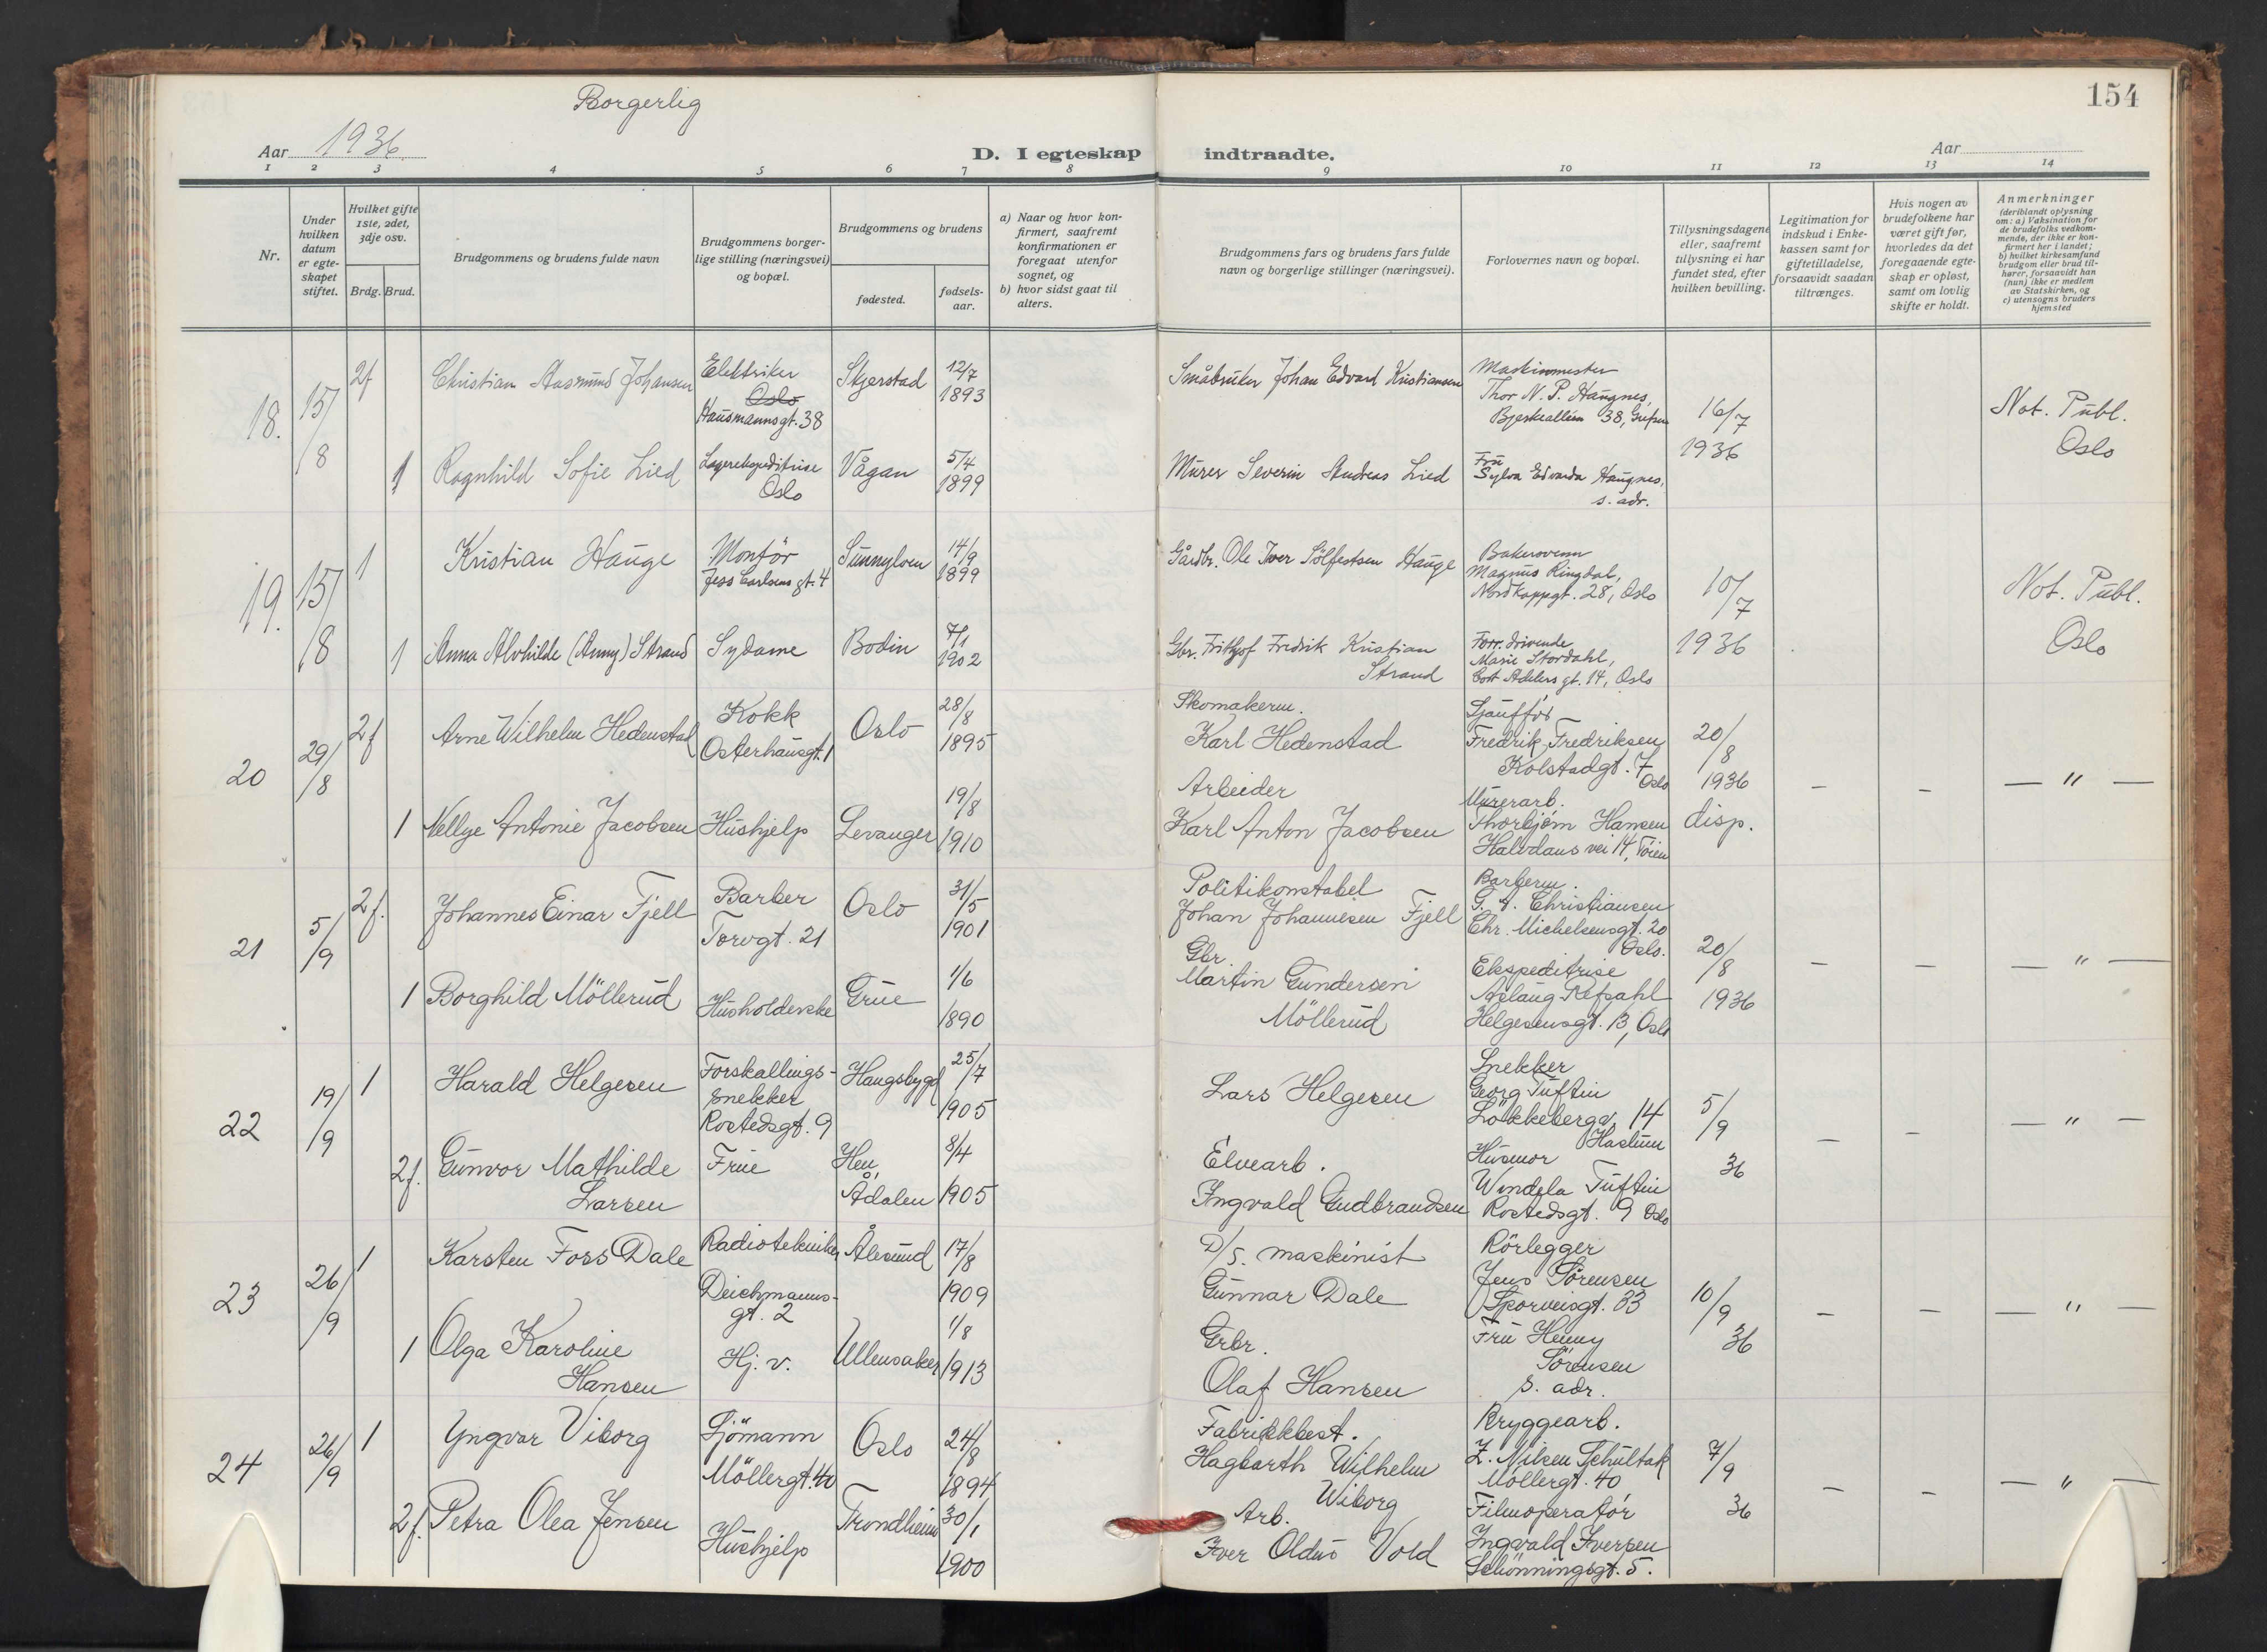 154
Borgerlig
Aar 1936.
D. I egteskap indtraadte.
Aar
1 2 3 4 5 6 7 8 9 10 11 12 13 14
Nr.
Under hvilken datum er egte-skapet stiftet.
Hvilket gifte 1ste, 2det, 3dje osv.
Brdg. Brud.
Brudgommens og brudens fulde navn
Brudgommens borger-
lige stilling (næringsvei)
og bopæl.
Brudgommens og brudens
fødested.
fødsels-
aar.
a) Naar og hvor kon-
firmert, saafremt
konfirmationen er
foregaat utenfor
sognet, og
b) hvor sidst gaat til
alters.
Brudgommens fars og brudens fars fulde
navn og borgerlige stillinger (næringsvei).
Forlovernes navn og bopæl.
Tillysningsdagene
eller, saafremt
tillysning ei har
fundet sted, efter
hvilken bevilling.
Legitimation for
indskud i Enke-
kassen samt for
giftetilladelse,
forsaavidt saadan
tiltrænges.
Hvis nogen av
brudefolkene har
været gift før,
hvorledes da det
foregaaende egte-
skap er opløst,
samt om lovlig
skifte er holdt.
Anmerkninger
(deriblandt oplysning
om: a) Vaksination for
de brudefolks vedkom-
mende, der ikke er kon-
firmert her i landet;
b) hvilket kirkesamfund
brudgom eller brud til-
hører, forsaavidt han
(hun) ikke er medlem
av Statskirken, og
c) utensogns bruders
hjemsted
18. 15/8
2f Christian Aasmund Johansen
Elektriker
Oslo
Hausmannsgt. 38
Skjerstad
12/7
1893
Småbruker Johan Edvard Kristiansen
Maskinmester
Thor N. P. Haugnes,
Bjerkealleen 38, Grefsen
16/7
1936
Not. Publ.
Oslo
1 Ragnhild Sofie Lied
Lagerekspeditrise
Oslo
Vågan
5/4
1899
Murer Severin Andreas Lied
Fru
Sylva Edvarda Haugnes,
s. adr.
19. 15/8
1 Kristian Hauge
Montör
Jess Carlsens gt. 4
Sunnylven
14/9
1899
Gårdbr. Ole Iver Sölfestsen Hauge
Bakersvenn
Magnus Ringdal,
Nordkappgt. 28, Oslo
10/7
1936
Not. Publ.
Oslo
1 Anna Alvhilde (Anny) Strand
Sydame
Bodin
7/1
1902
Gbr. Frithjof Fredrik Kristian
Strand
Forr. drivende
Marie Stordahl,
Cort Adelers gt. 14, Oslo
20 29/8
2f Arne Wilhelm Hedenstad
Kokk
Osterhausgt. 1
Oslo
28/8
1895
Skomakerm.
Karl Hedenstad
Sjauffør
Fredrik Fredriksen
Kolstadgt. 7
Oslo
20/8
1936
disp.
— — — " —
1 Nellye Antonie Jacobsen
Hushjelp
Levanger
19/8
1910
Arbeider
Karl Anton Jacobsen
Murerarb.
Thorbjørn Hansen
Halvdans vei 14, Töien
21 5/9
2f. Johannes Einar Fjell
Barber
Torvgt. 21
Oslo
31/5
1901
Politikonstabel
Johan Johannesen Fjell
Barberm.
G. A. Christiansen
Chr. Michelsensgt. 20
Oslo.
20/8
1936
— — — " —
1 Borghild Möllerud
Husholderske
Grue
1/6
1890
Gbr.
Martin Gundersen
Möllerud
Ekspeditrise
Aslaug Refsahl
Helgesensgt. 13, Oslo
22 19/9
1 Harald Helgesen
Forskallings-
snekker
Rostedsgt. 9
Haugsbygd
25/7
1905
Lars Helgesen
Snekker
Georg Tuftin
Lökkebergv. 14
Haslum
5/9
36
— — — " —
2f. Gunvor Mathilde
Larsen
Frue
Hen,
Ådalen
8/4
1905
Elvearb.
Yngvald Gudbrandsen
Husmor
Wendela Tuftin
Rostedsgt. 9 Oslo
23 26/9
1 Karsten Foss Dale
Radiotekniker
Deichmanns-
gt. 2
Ålesund
17/8
1909
D/S. maskinist
Gunnar Dale
Rörlegger
Jens Sörensen
Sporveisgt. 33
10/9
36
— — — " —
1 Olga Karoline
Hansen
Hj. v.
Ullensaker
1/8
1913
Grbr.
Olaf Hansen
Fru Henny
Sörensen
s. adr.
24 26/9
1 Yngvar Viborg
Sjömann
Möllergt. 40
Oslo
24/8
1894
Fabrikkbest.
Hagbarth Wilhelm
Wiborg
Bryggearb.
Z. Nilsen Schultak
Möllergt. 40
7/9
36
— — — " —
2f. Petra Olea Jensen
Hushjelp
Trondheim
30/1
1900
Arb.
Iver Oldus Vold
Filmoperatör
Ingvald Iversen
Schönningsgt. 5.